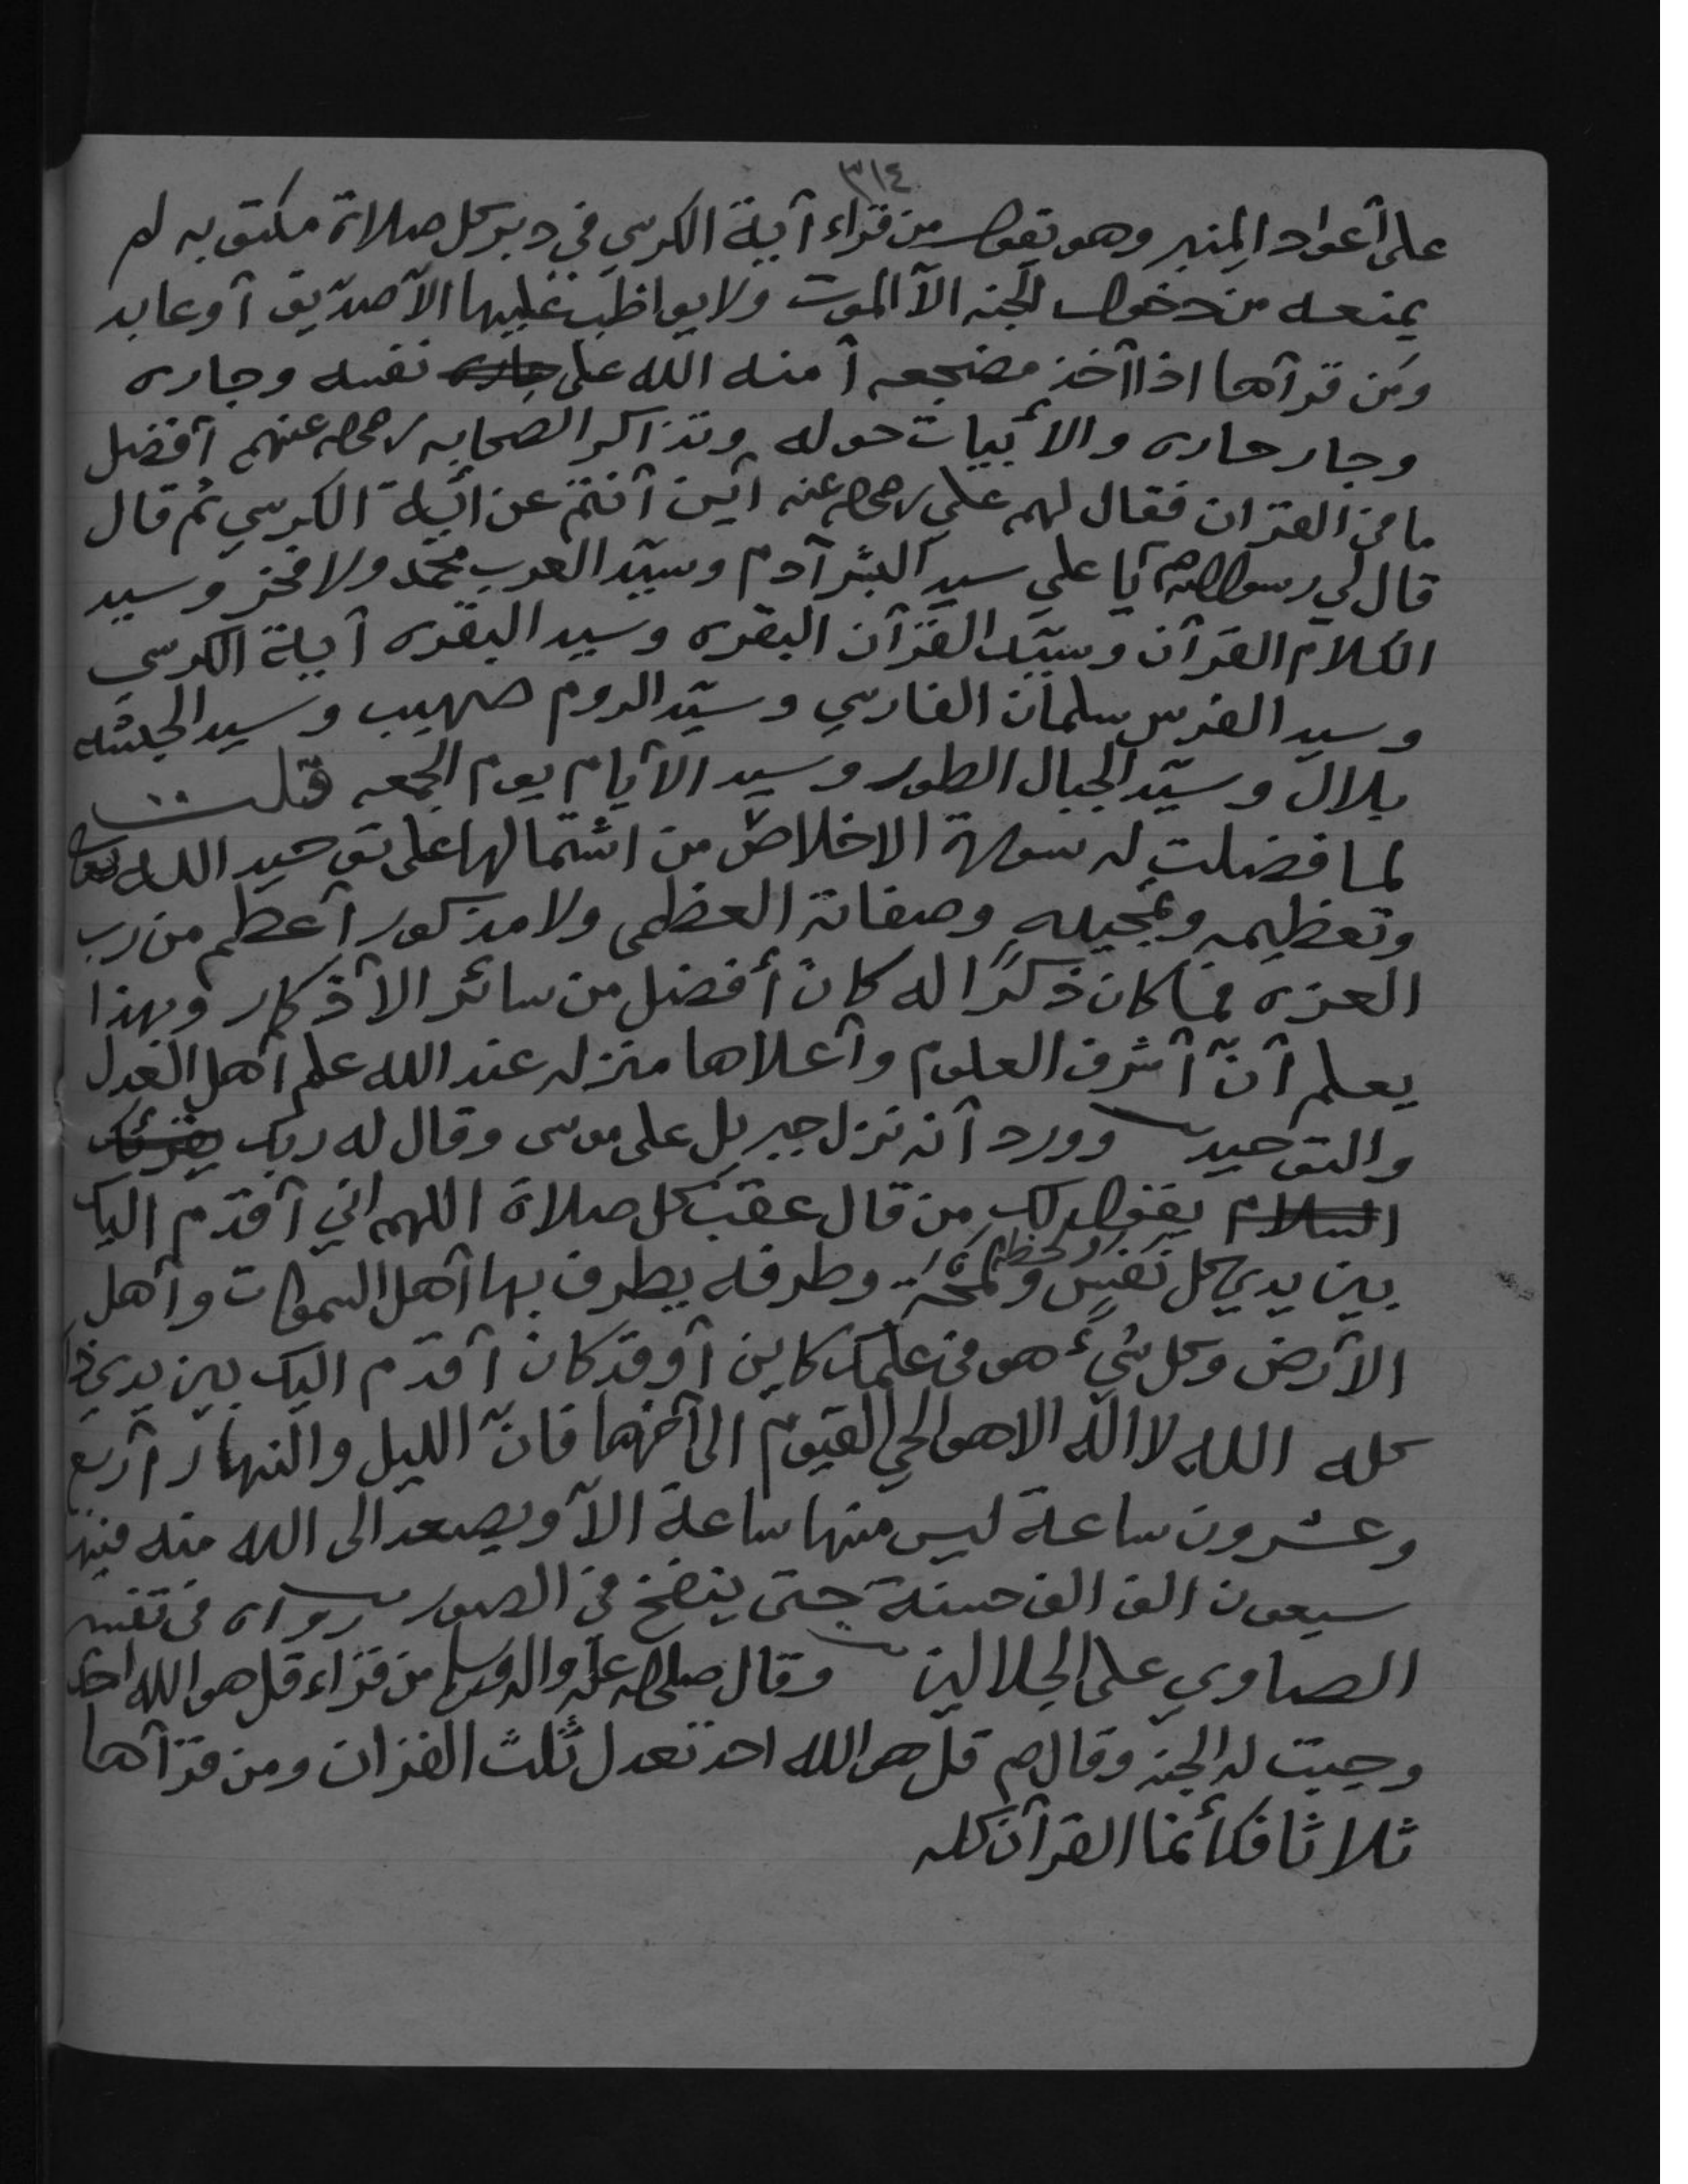 ٣١٤
على أعواد المنبر وهو يقول من قراء آية الكرسي في دبر كل صلاة مكتوبه لم
يمنعه من دخول الجنه الآ الموت ولا يواظب عليها الآ صدّيق أو عابد
ومن قرآها اذا آخذ مضجعه آمنه الله على جاره نفسه وجاره
وجار جاره والأبيات حوله وتذاكر الصحابه رضي الله عنهم آفضل
ما في القرآن فقال لهم علي رضي الله عنه آين آنتم عن آية الكرسي ثم قال
قال لي رسول الله ص يا علي سيد البشر آدم وسيّد العرب محمّد ولا فخر وسيد
الكلام القرآن وسيّد القرآن البقره وسيد البقره آية الكرسي
وسيد الفرس سلمان الفارسي وسيّد الروم صهيب وسيد الحبشه
بلال وسيّد الجبال الطور وسيد الآيام يوم الجمعه قلت
لما فضلت له سورة الاخلاص من اشتمالها على توحيد الله تعالى
وتعظيمه وتمجيده وصفاته العظمى ولا مذكور آعظم من رب
العزه فما كان ذكرًا له كان أفضل من سائر الآذكار وبهذا
يعلم آنّ آشرف العلوم وآعلاها منزله عند الله علم آهل العدل
والتوحيد وورد آنه نزل جبريل على موسى وقال له ربك يقرئك
السلام يقول لك من قال عقب كل صلاة اللهم اني آقدم اليك
بين يدي كل نفسٍ ولمحة ولحظه وطرفه يطرف بها آهل السموات وآهل
الآرض وكل شيء هو في علمك كاين آو قد كان آقدم اليك بين يدي ذلك
كله الله لا اله الا هو الحي القيوم الى آخرها فانّ الليل والنهار آربع
وعشرون ساعة ليس منها ساعة الآ ويصعد الى الله منه فيها
سبعون الف الف حسنة حتى ينفخ في الصور رواه في تفسير
الصاوي على الجلالين وقال صلى الله عليه واله وسلم من قراء قل هو الله احد
وجبت له الجنه وقال ص قل هو الله احد تعدل ثلث القران ومن قرآها
ثلاثا فكأنما القرآن كله